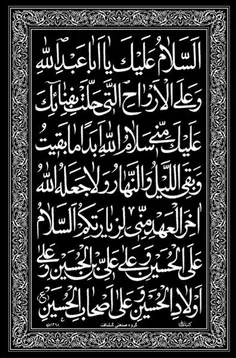 السَّلامُ عَلَيْكَ يا اَبا عَبْدِ اللهِ
وَعَلَى الْاَرْواحِ الَّتى حَلَّتْ بِفِنائِكَ
عَلَيْكَ مِنّى سَلامُ اللهِ اَبَداً ما بَقيتُ
وَبَقِىَ اللَّيْلُ وَالنَّهارُ وَلا جَعَلَهُ اللهُ
اخِرَ الْعَهْدِ مِنّى لِزِيارَتِكُمْ السَّلامُ
عَلَى الْحُسَيْنِ وَعَلى عَلِىِّ بْنِ الْحُسَيْنِ وَعَلى
اَوْلادِ الْحُسَيْنِ وَعَلى اَصْحابِ الْحُسَيْنِ